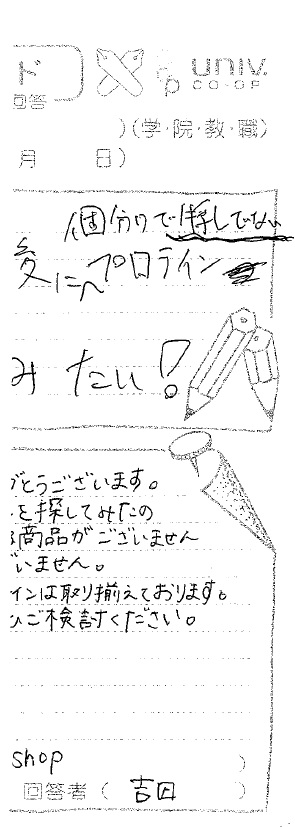 ド
univ.
CO-OP
回答
)(学・院・教・職)
月 日)
1個分けで
愛にプロテイン
みたい!
がとうございます。
を探してみたの
商品がございません
いません。
インは取り揃えております。
ご検討ください。
shop )
回答者 ( 吉田 )